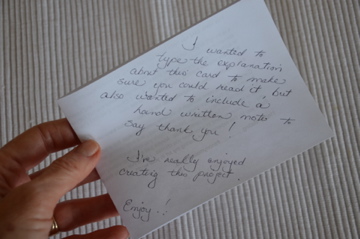 I wanted to
type the explanation
about this card to make
sure you could read it, but
also wanted to include a
hand written note to
say thank you!
I've really enjoyed
creating this project
Enjoy!!